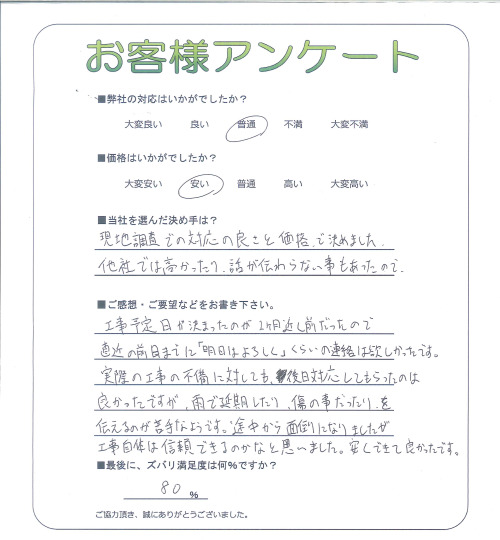 お客様アンケート
■弊社の対応はいかがでしたか？
大変良い 良い 普通 不満 大変不満
■価格はいかがでしたか？
大変安い 安い 普通 高い 大変高い
■当社を選んだ決め手は？
現地調査での対応の良さと価格で決めました。
他社では高かったり、話が伝わらない事もあったので。
■ご感想・ご要望などをお書き下さい。
工事予定日が決まったのが1ヶ月近く前だったので
直近の前日までに「明日はよろしく」くらいの連絡は欲しかったです。
実際の工事の不備に対しても、後日対応してもらったのは
良かったですが、雨で延期したり、傷の事だったり、を
伝えるのが苦手なようです。途中から面倒になりましたが
工事自体は信頼できるのかなと思いました。安くできて良かったです。
■最後に、ズバリ満足度は何％ですか？
80 %
ご協力頂き、誠にありがとうございました。